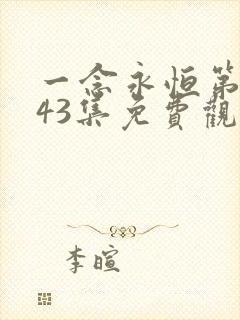 一念永恒第
43集免費觀
李暄